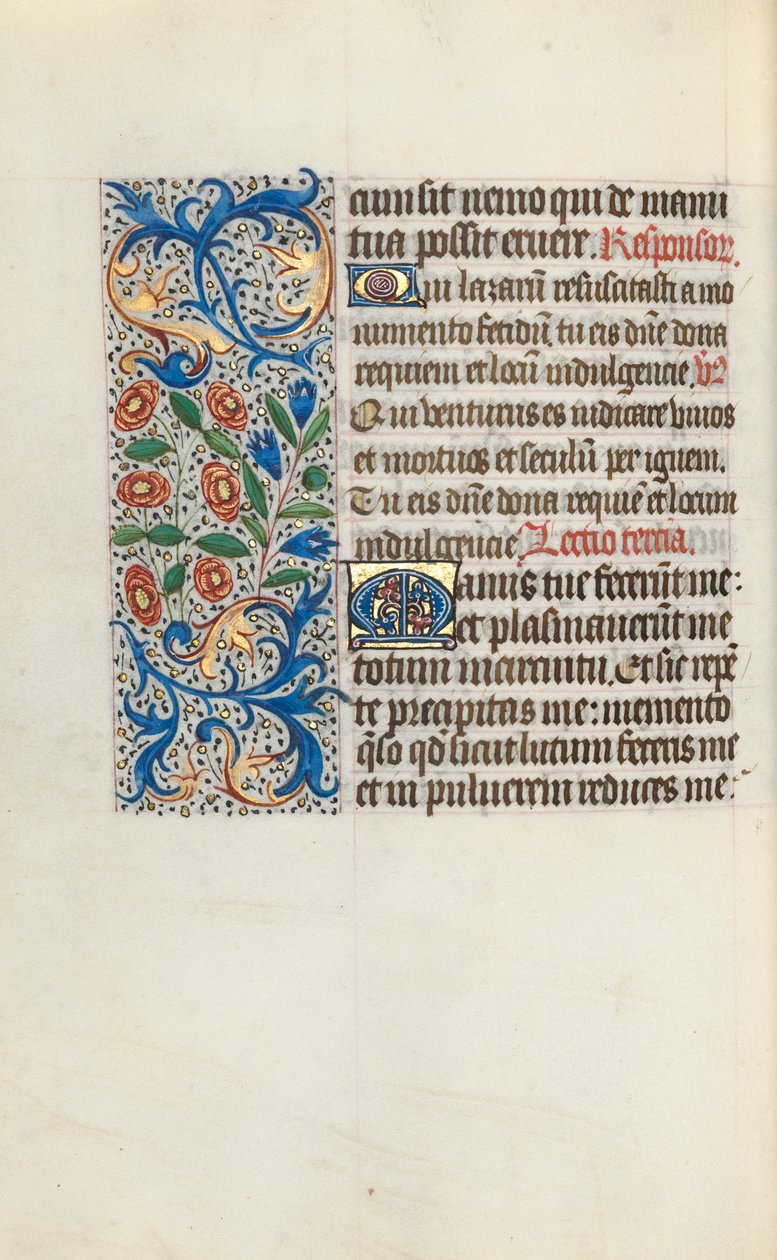 cum sit nemo qui de manu
tua possit eruere. Responsor.
Qui lazarū resuscitasti a mo
numento fetidū. tu eis dn̄e dona
requiem et locū indulgencie. V̄
Qui venturus es iudicare viuos
et mortuos et seculū per ignem.
Tu eis dn̄e dona requiē et locum
indulgencie. Lectio tercia.
Manus tue fecerūt me:
et plasmauerūt me
totum in circuitu. Et sic repē
te precipitas me: memento
q̄so qd̄ sicut lutum feceris me
et in puluerem reduces me.